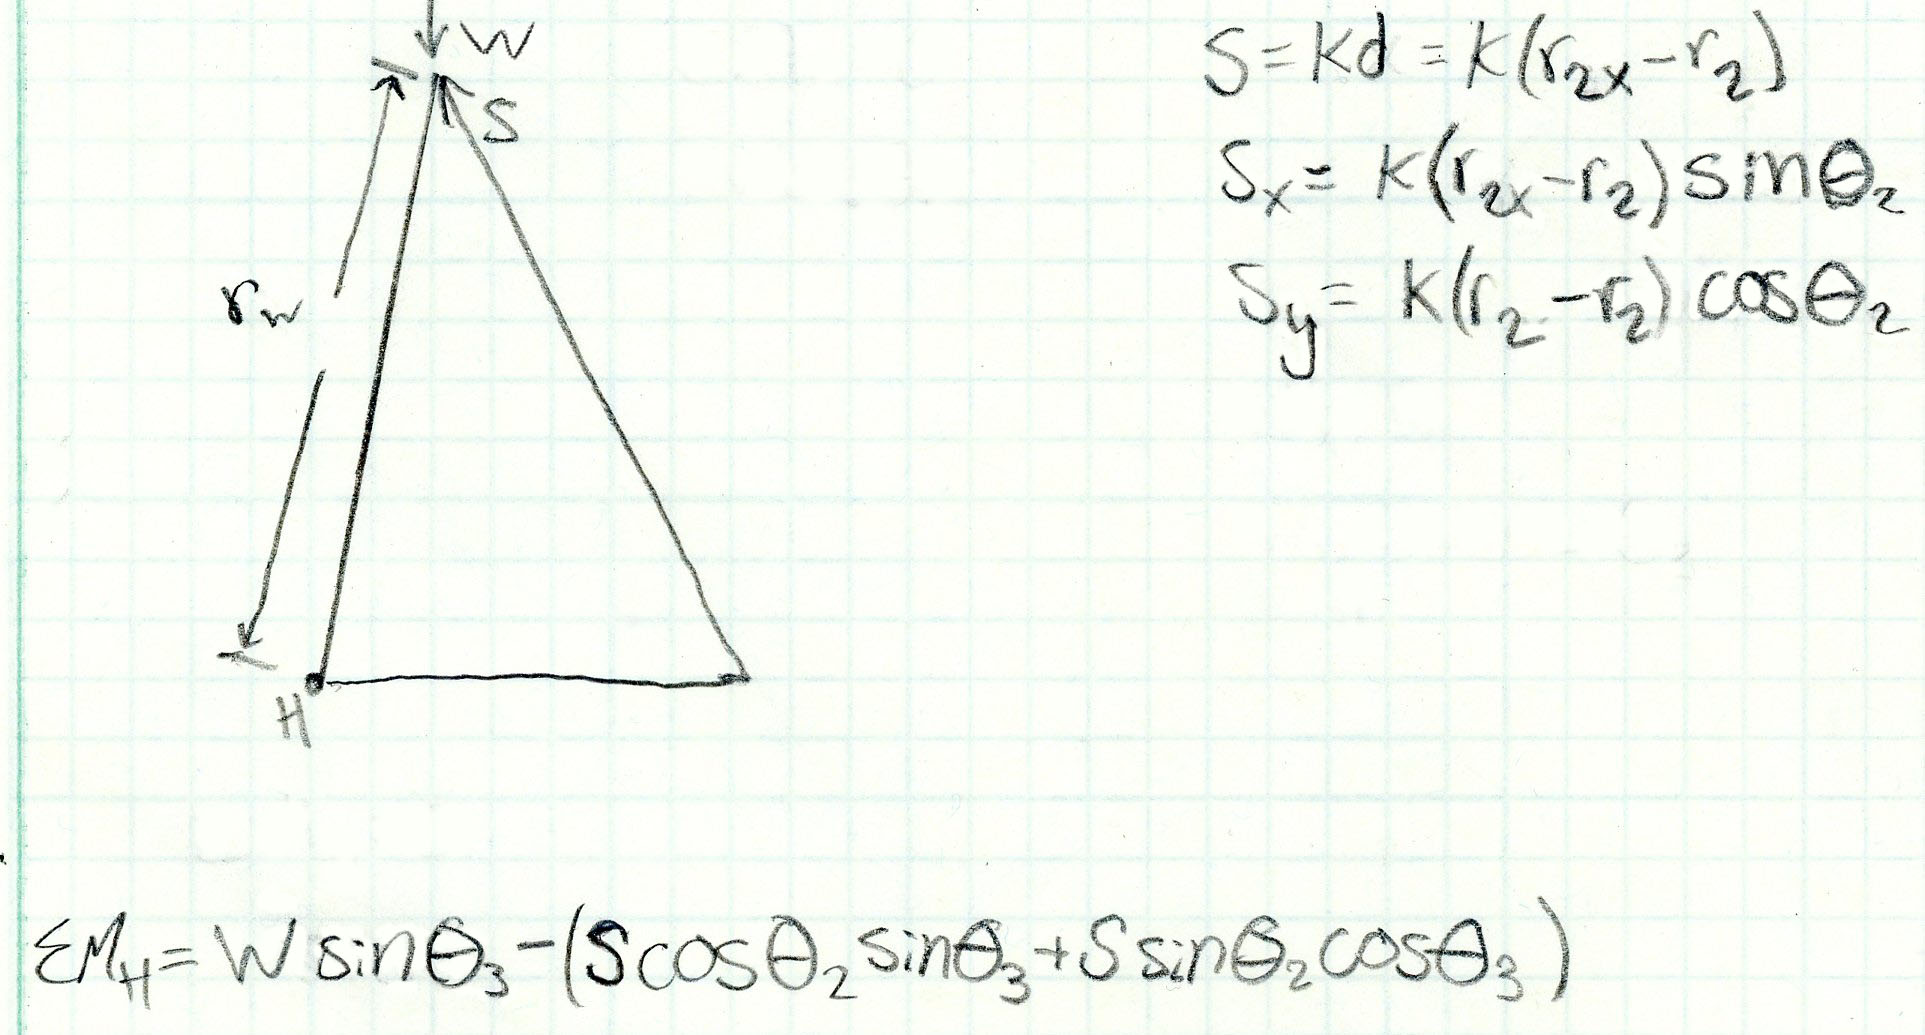 W
S = Kd = K(r₂ₓ - r₂)
S
Sₓ = K(r₂ₓ - r₂) sinθ₂
r_w
S_y = K(r₂ - r₂) cosθ₂
H
ΣM_H = W sinθ₃ - (S cosθ₂ sinθ₃ + S sinθ₂ cosθ₃)